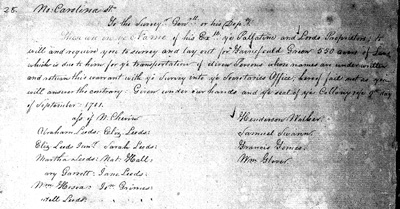 25. No. Carolina ss
To the Survey.r Gen.ll or his Dep.t
These are in ye Name of his Ex.ly ye Palatine and Lords Proprietors, to
will and require you to survey and lay out for 550 acres of Land
which is due to him for ye transportation of divers Persons whose names are underwritten
and return this warrant with ye Survey into ye Secretaries Office, hereof fail not as you
will answer the contrary. Given under our hands and ye seal of ye Collony ye 9th day
of September 1701.
ass of N. Chevin Henderson Walker
Abraham Leeds: Eliz Leeds: Samuel Swann
Eliz Leeds Junr Sarah Leeds: Francis
Martha Leeds: Nat: Hall Wm Glover
ary Garrett: Jane Leeds:
Wm Jon
Leeds